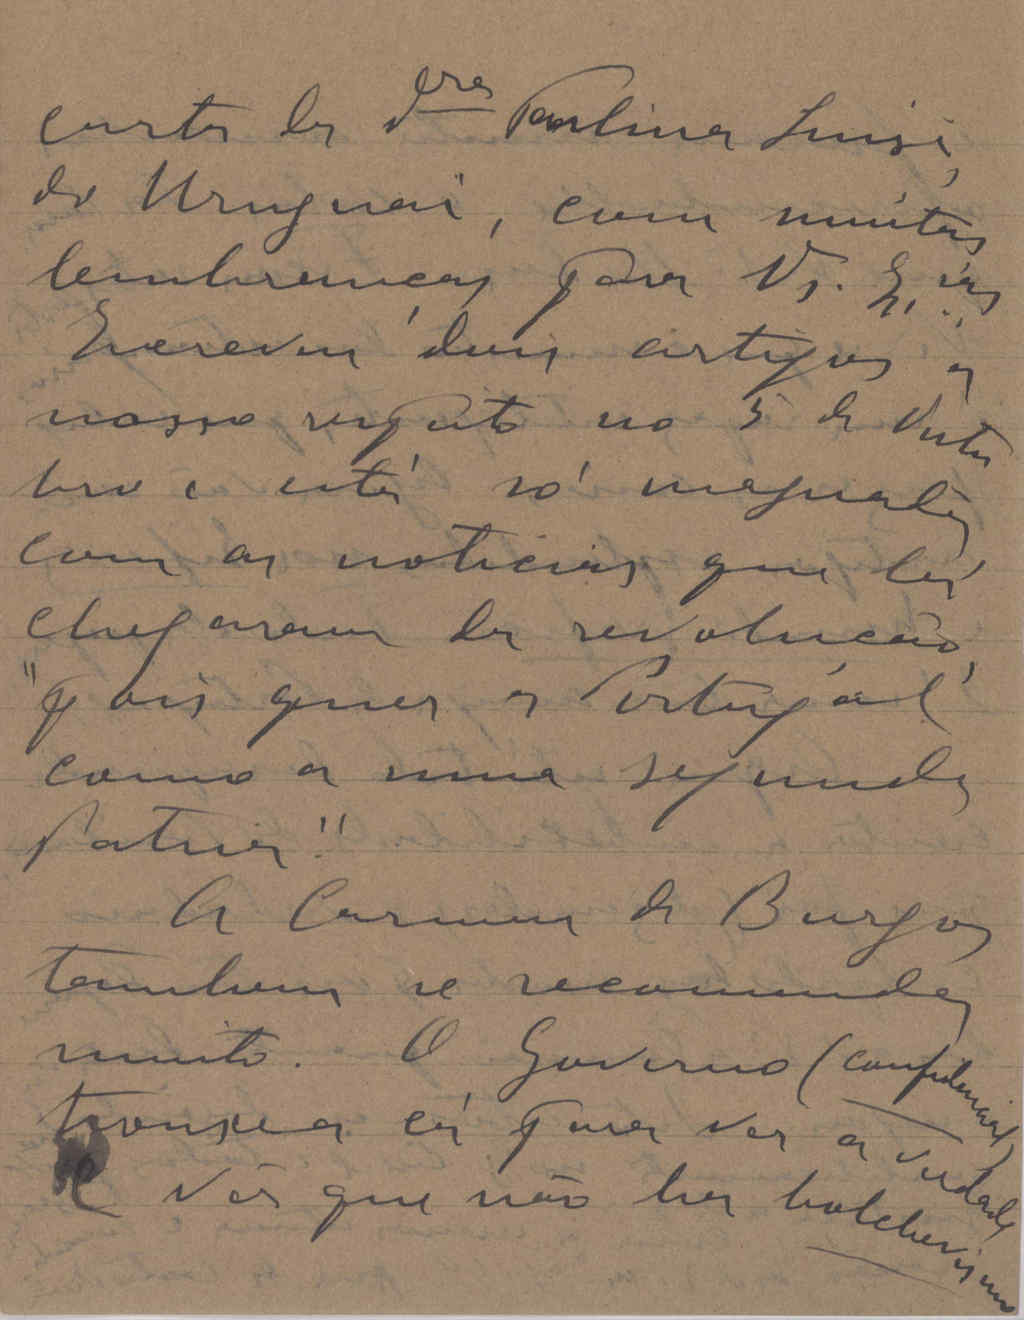 carta da Dra Paulina Luisi,
do Uruguai, com muitas
lembranças para Vs. Exias.
Escreveu dois artigos a
nosso respeito no 5 de Outu
bro e está só magoada
com as noticias que lá
chegaram da revolução,
"pois quer a Portugal
como a uma segunda
Patria".
A Carmen de Burgos
tambem se recomenda
muito. O Governo (confidencial)
trouxe-a cá para ver a verdade
e ver que não ha bolchevismo